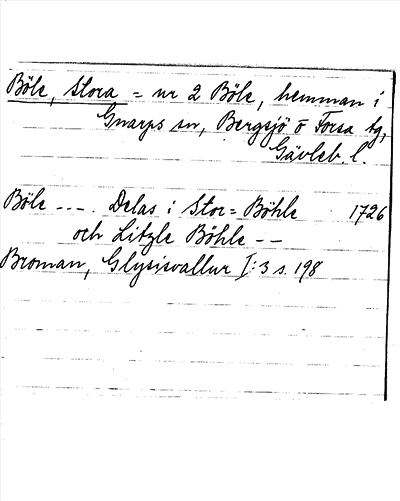 Böle, Stora = nr 2 Böle, hemman i
Gnarps sn, Bergsjö o Forsa tg,
Gävleb. l.
Böle ---. Delas i Stor= Böhle 1726
och Litzle Böhle --
Broman, Glysisvallur I:3 s. 198